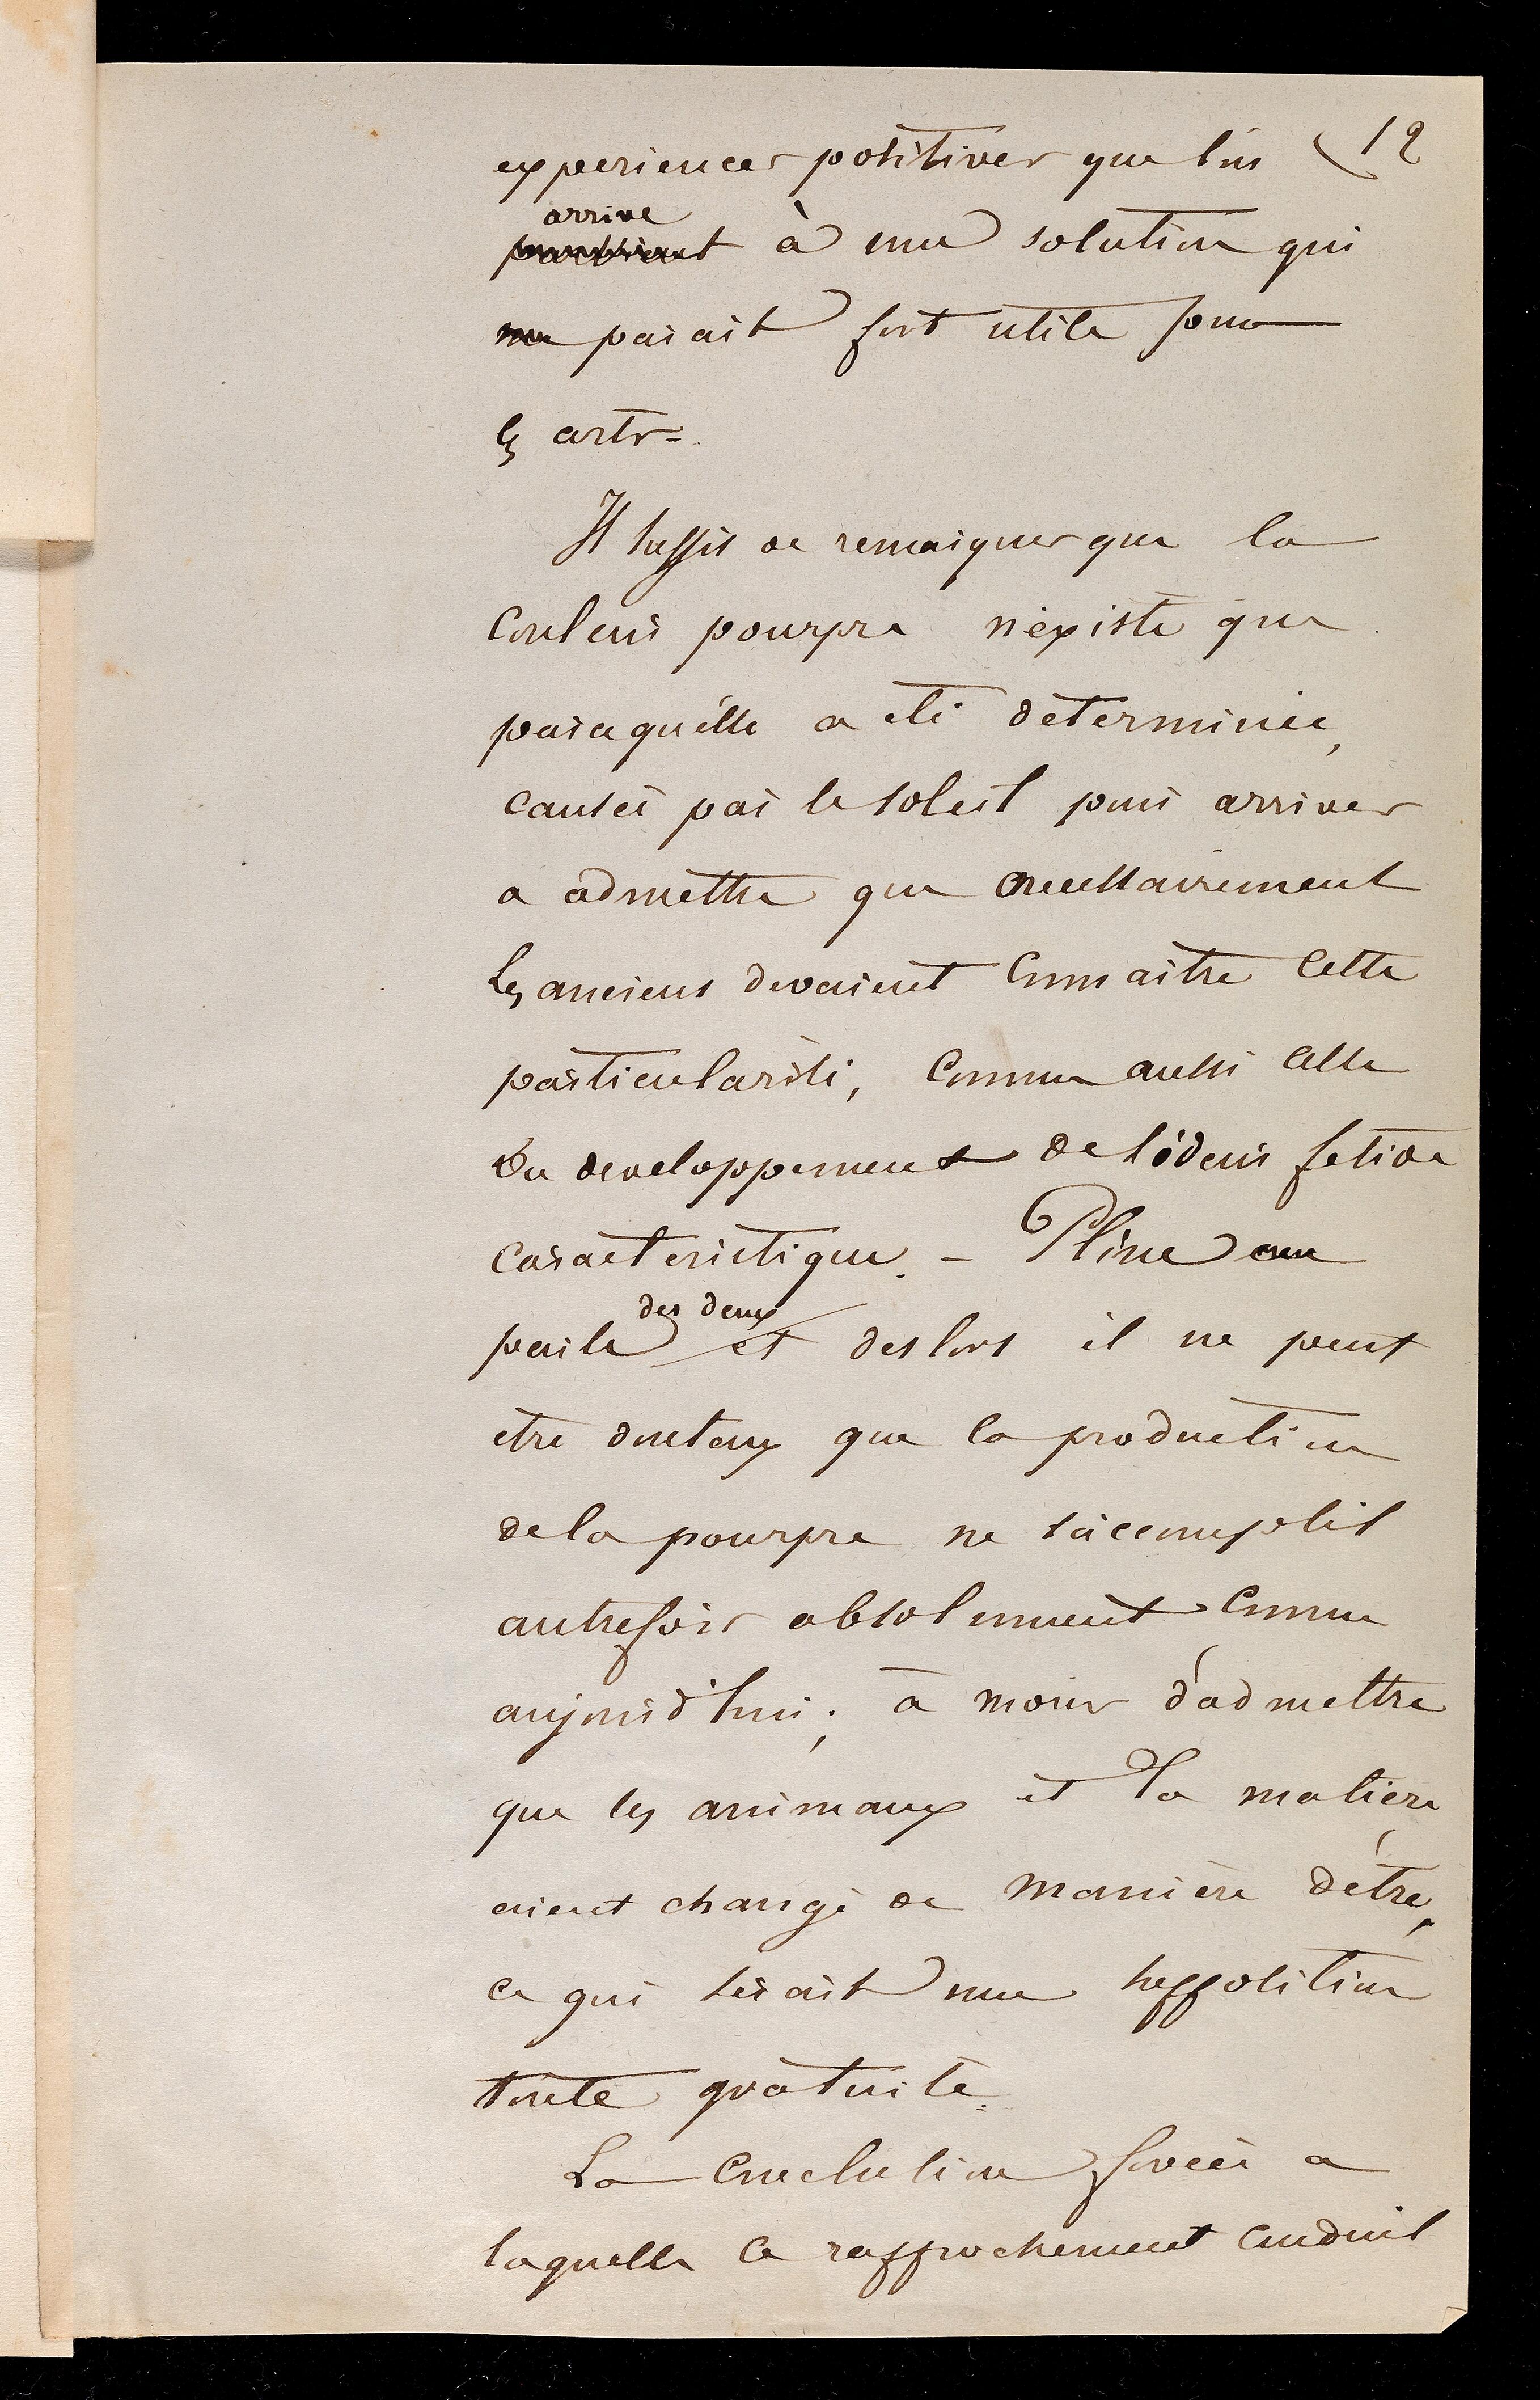 12
experiences positives que l'on
arrive
parvient à une solution qui
me parait fort utile pour
les arts=
Il suffit de remarquer que la
couleur pourpre n'existe que
parcequ'elle a été déterminée,
causée par le soleil pour arriver
a admettre que necessairement
les anciens devaient connaitre cette
particularité, comme aussi celle
du developpement de l'odeur fetide
caracteristique. – Pline en
des deux
parle et deslors il ne peut
etre douteux que la production
de la pourpre ne s'accomplit
autrefois absolument comme
aujourd'hui; à moins d'admettre
que les animaux et la matiere
aient changé de manière d'être,
ce qui serait une supposition
toute gratuite.
La conclusion forcée a
laquelle ce rapprochement conduit